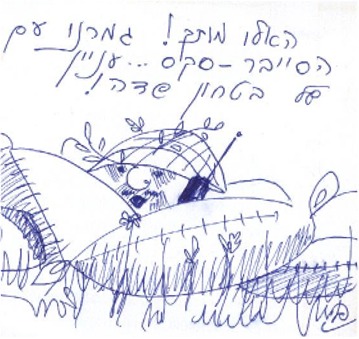 האלו מותק! גמרנו עם
הסייבר-סקס...עניין
של בטחון שדה!